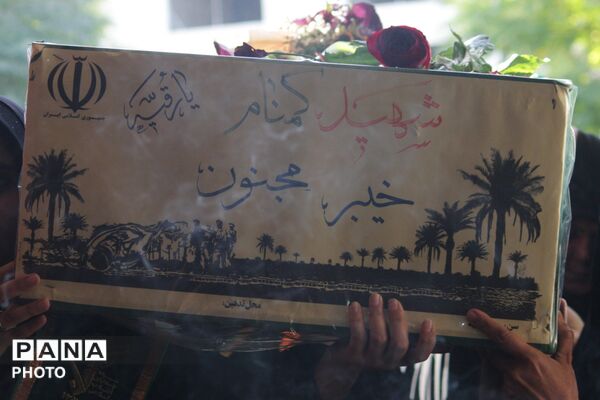 جمهوری اسلامی ایران
یا رقیه
شهید گمنام
خیبر مجنون
محل تدفین:
سن:
PANA
PHOTO